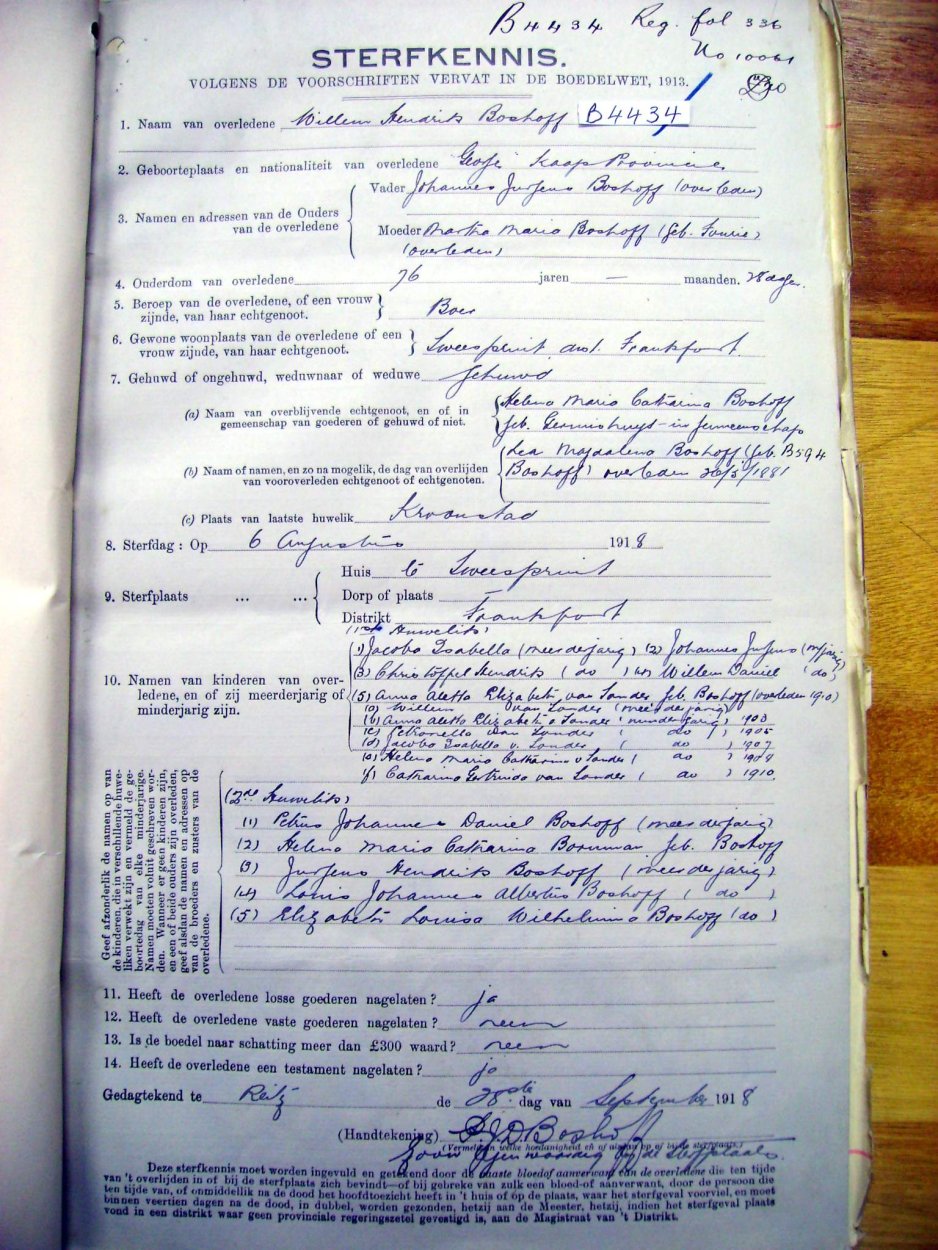 B4434 Reg. fol 336
No 10061
STERFKENNIS.
VOLGENS DE VOORSCHRIFTEN VERVAT IN DE BOEDELWET, 1913.
1. Naam van overledene Willem Hendrik Boshoff B4434
2. Geboorteplaats en nationaliteit van overledene Kaap Provincie
3. Namen en adressen van de Ouders van de overledene
Vader Johannes Jurgens Boshoff (overleden)
Moeder Martha Maria Boshoff (geb. Fourie)
(overleden)
4. Onderdom van overledene 76 jaren — maanden. 28 dagen.
5. Beroep van de overledene, of een vrouw
zijnde, van haar echtgenoot. Boer
6. Gewone woonplaats van de overledene of een
vrouw zijnde, van haar echtgenoot. Tweespruit, dist. Frankfort
7. Gehuwd of ongehuwd, weduwnaar of weduwe Gehuwd
(a) Naam van overblijvende echtgenoot, en of in
gemeenschap van goederen of gehuwd of niet.
Helena Maria Catharina Boshoff
geb. Terminshuys - in gemeenschap
(b) Naam of namen, en zo na mogelik, de dag van overlijden
van vooroverleden echtgenoot of echtgenoten.
Lea Magdalena Boshoff (geb. B594
Boshoff) overleden 26/5/1881
(c) Plaats van laatste huwelik Kroonstad
8. Sterfdag: Op 6 Augustus 1918
9. Sterfplaats ... ...
Huis te Tweespruit
Dorp of plaats —
Distrikt Frankfort
10. Namen van kinderen van over-
ledene, en of zij meerderjarig of
minderjarig zijn.
(1ste Huwelik)
(1) Jacoba Isabella (meerderjarig) (2) Johannes Jurgens (m/jarig)
(3) Christoffel Hendrik (do) (4) Willem Daniel (do)
(5) Anna Aletta Elizabeth van Landes geb. Boshoff (overleden 1910)
(a) Willem van Landes (meerderjarig)
(b) Anna Aletta Elizabeth v Landes (minderjarig) 1903
(c) Petronella van Landes (do) 1905
(d) Jacoba Isabella v. Landes (do) 1907
(e) Helena Maria Catharina v Landes (do) 1908
(f) Catharina Gertruida van Landes (do) 1910
Geef afzonderlik de namen op van
de kinderen, die in verschillende huwe-
liken verwekt zijn en vermeld de ge-
boortedag van elke minderjarige.
Namen moeten voluit geschreven wor-
den. Wanneer er geen kinderen zijn,
en een of beide ouders zijn overleden,
geef alsdan de namen en adressen op
van de broeders en zusters van de
overledene.
(2de Huwelik)
(1) Petrus Johannes Daniel Boshoff (meerderjarig)
(2) Helena Maria Catharina Bornman geb. Boshoff
(3) Jurgens Hendrik Boshoff (meerderjarig)
(4) Louis Johannes Albertus Boshoff (do)
(5) Elizabeth Louisa Wilhelmina Boshoff (do)
11. Heeft de overledene losse goederen nagelaten? ja
12. Heeft de overledene vaste goederen nagelaten? neen
13. Is de boedel naar schatting meer dan £300 waard? neen
14. Heeft de overledene een testament nagelaten? ja
Gedagtekend te Reitz de 28ste dag van September 1918
(Handtekening) P.J.D. Boshoff
(Vermeld in welke hoedanigheid en of alsdan op of bij de sterfplaats.)
Zoon Tegenwoordig bij de sterfplaats
Deze sterfkennis moet worden ingevuld en getekend door de naaste bloedof aanverwant van de overledene die ten tijde
van 't overlijden in of bij de sterfplaats zich bevindt—of bij gebreke van zulk een bloed-of aanverwant, door de persoon die
ten tijde van, of onmiddellik na de dood het hoofdtoezicht heeft in 't huis of op de plaats, waar het sterfgeval voorviel, en moet
binnen veertien dagen na de dood, in dubbel, worden gezonden, hetzij aan de Meester, hetzij, indien het sterfgeval plaats
vond in een distrikt waar geen provinciale regeringszetel gevestigd is, aan de Magistraat van 't Distrikt.